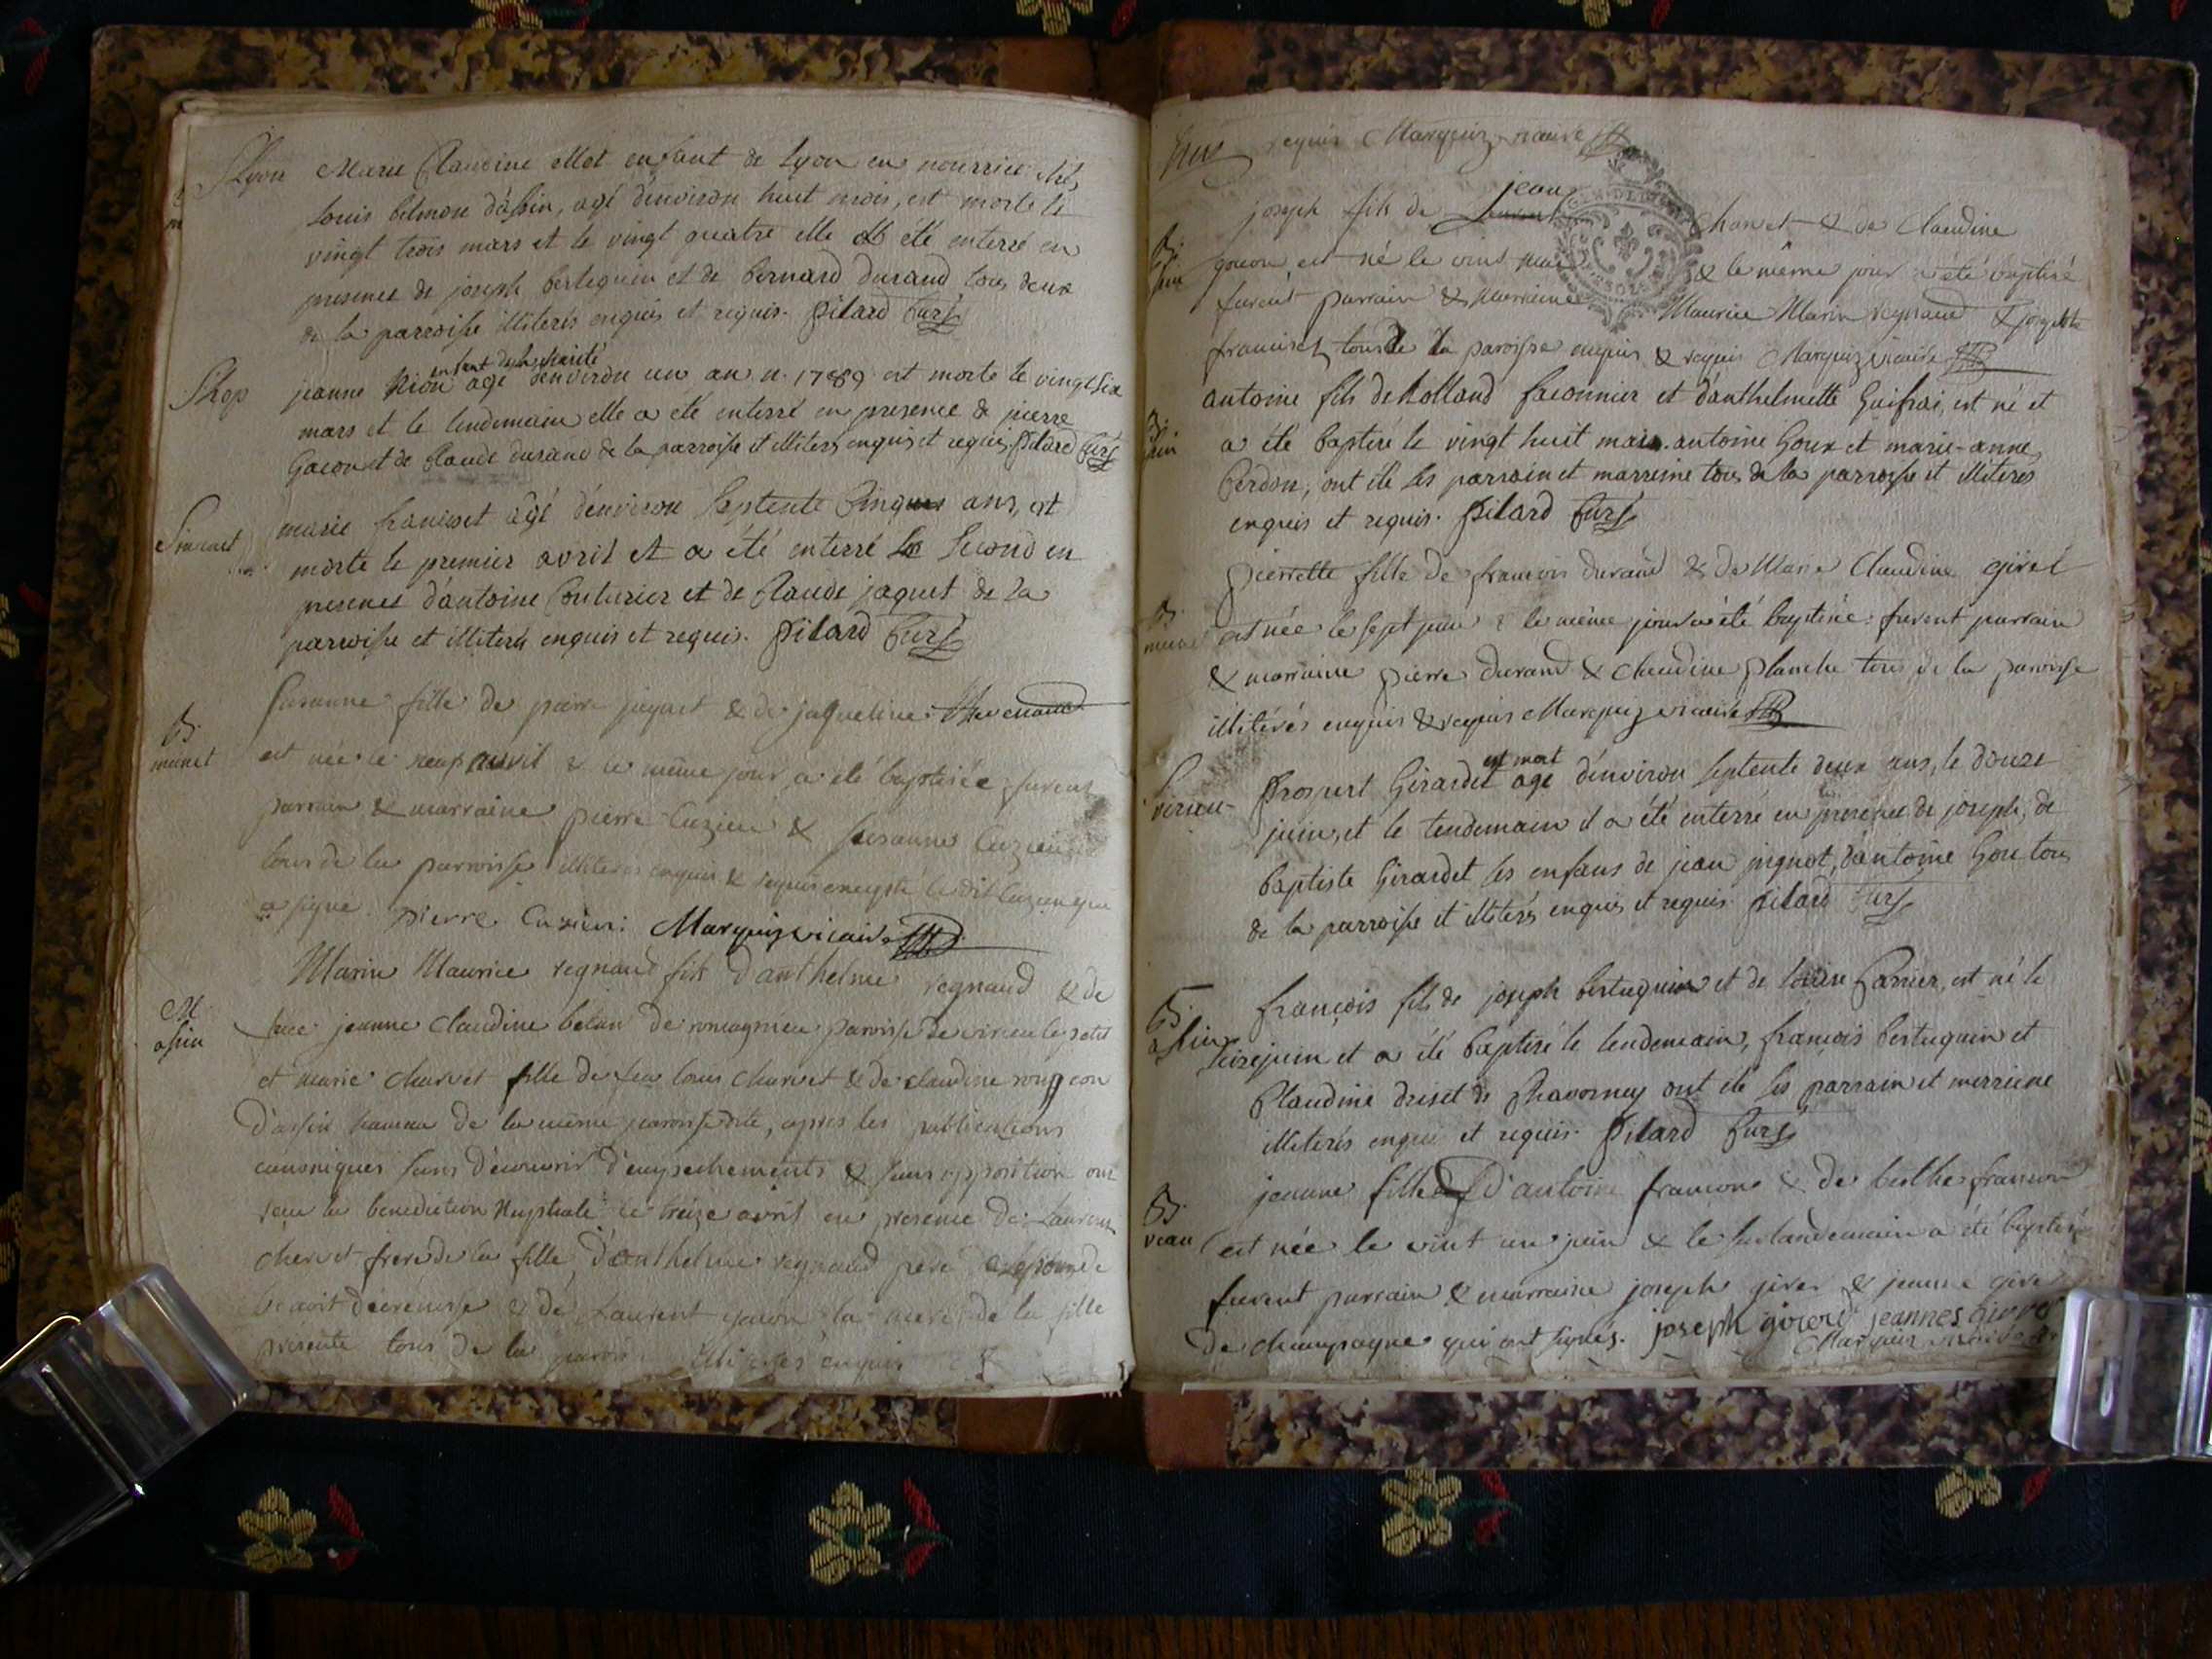 S Lyon
Marie Claudine Mot enfant de Lyon en nourrice chés
Louis belmon d'assin, agé d'environ huit mois, est morte le
vingt trois mars et le vingt quatre elle a été enterré en
presence de joseph bertuguin et de bernard durand tous deux
de la parroisse illiterés enquis et requis. Pilard Curé
S hop
enfant de la charité
jeanne agé d'environ un an n. 1789 est morte le vingt six
mars et le lendemain elle a été enterré en presence de pierre
Gacon et de Claude durand de la parroisse et illiterés enquis et requis. Pilard Curé
marie francoet agé d'environ septente Cinq ans, est
morte le premier avril et a été enterré le second en
presence d'antoine Couturier et de Claude jaquet de la
parroisse et illiterés enquis et requis. Pilard Curé
B.
munet
Susanne fille de pierre juyart & de jaqueline
est née le neuf avril & le même jour a été baptisée furent
parrain & marraine pierre Cuzieu & susanne Cuzieu
tous de la parroisse illiterés enquis & requis excepté ledit Cuzieu qui
a signé. pierre Cuzieu: Marquis vicaire
M
assin
Marin Maurice regnaud fils d'anthelme regnaud & de
feue jeanne claudine bélan de romagnieu paroisse de virieu le petit
et marie charvet fille de feu louis charvet & de claudine
d'assin hameau de la même paroisse dite, apres les publications
canoniques sans découvrir d'empechements & sans opposition ont
reçu la benediction Nuptiale le treize avril en presence de Laurent
chervet frere de la fille, d'anthelme regnaud pere de
& de Laurent gacon la mere de la fille
presente tous de la paroisse illiterés enquis &
requis Marquis vicaire
B.
assin
jean
joseph fils de Charvet & de Claudine
gacon est né le vint mai & le même jour a été baptisé
furent parrain & marraine Maurice Marin regnaud & josephte
francisct tous de la paroisse enquis & requis Marquis vicaire
B.
assin
antoine fils de Rolland faconnier et d'anthelmette Guifrai, est né et
a été baptisé le vingt huit mai. antoine Goux et marie-anne
berdon, ont été ses parrain et marreine tous de la parroisse et illiterés
enquis et requis. Pilard Curé
B.
munet
pierrette fille de francois durand & de Marie Claudine girel
est née le sept juin & le même jour a été baptisée: furent parrain
& marraine pierre durand & claudine planche tous de la paroisse
illitérés enquis & requis Marquis vicaire
S
virieu
est mort
Prospert Girardet agé d'environ septente deux ans, le douze
juin, et le lendemain il a été enterré en presence de joseph, de
baptiste Girardet ses enfans de jean juguet, d'antoine Goie tous
de la parroisse et illiterés enquis et requis. Pilard Curé
B.
assin
françois fils de joseph bertuguin et de louise Carrier, est né le
seize juin et a été baptisé le lendemain, françois bertuguin et
Claudine driset de Chavorney ont été ses parrain et merreine
illiterés enquis et requis. Pilard Curé
B.
veau
jeanne fille d'antoine francon & de berthe francon
est née le vint un juin & le surlandemain a été baptisé
furent parrain & marraine joseph girer & jeanne girer
de champagne qui ont signés. joseph jeannes
Marquis vicaire